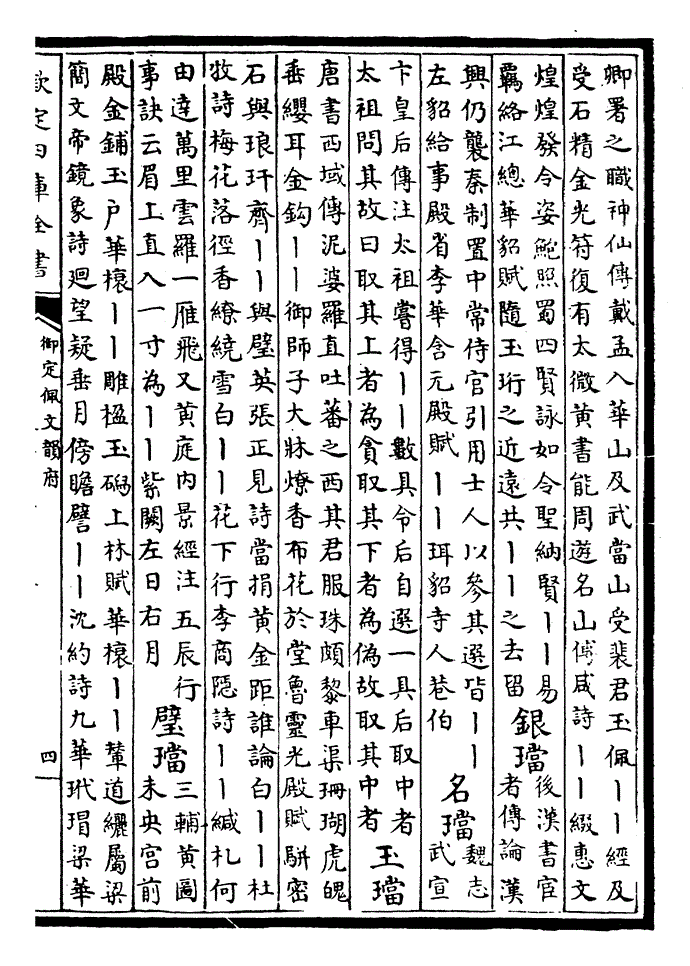 卿署之職神仙傳戴孟入華山及武當山受裴君玉佩丨丨經及
受石精金光符復有太微黄書能周遊名山傅咸詩丨丨綴惠文
煌煌發令姿鮑照蜀四賢詠如令聖納賢丨丨易
羈絡江總華貂賦隨玉珩之近遠共丨丨之去留
銀璫
後漢書宦
者傳論漢
興仍襲秦制置中常侍官引用士人以參其選皆丨丨
左貂給事殿省李華含元殿賦丨丨珥貂寺人巷伯
名璫
魏志
武宣
卞皇后傳注太祖嘗得丨丨數具令后自選一具后取中者
太祖問其故曰取其上者為貪取其下者為偽故取其中者
玉璫
唐書西域傳泥婆羅直吐蕃之西其君服珠頗黎車渠珊瑚虎魄
垂纓耳金鈎丨丨御師子大牀燎香布花於堂魯靈光殿賦駢密
石與琅玕齊丨丨與璧英張正見詩當捐黄金距誰論白丨丨杜
牧詩梅花落徑香繚繞雪白丨丨花下行李商隱詩丨丨緘札何
由達萬里雲羅一雁飛又黄庭内景經注五辰行
事訣云眉上直入一寸為丨丨紫闕左日右月
璧璫
三輔黄圖
未央宫前
殿金鋪玉户華榱丨丨雕楹玉碣上林賦華榱丨丨輦道纚屬梁
簡文帝鏡象詩迴望疑垂月傍瞻譬丨丨沈約詩九華玳瑁梁華
欽定四庫全書
御定佩文韻府
四